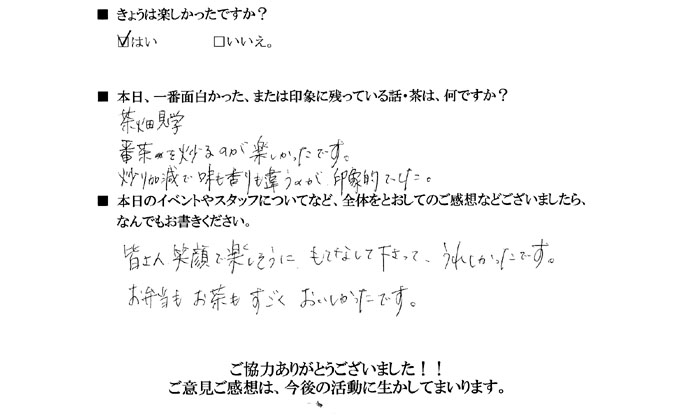 ■ きょうは楽しかったですか？
☑はい　□いいえ。
■ 本日、一番面白かった、または印象に残っている話・茶は、何ですか？
茶畑見学
番茶を炒るのが楽しかったです。
炒り加減で味も香りも違うのが印象的でした。
■ 本日のイベントやスタッフについてなど、全体をとおしてのご感想などございましたら、
なんでもお書きください。
皆さん笑顔で楽しそうに、もてなして下さって、うれしかったです。
お弁当もお茶もすごくおいしかったです。
ご協力ありがとうございました！！
ご意見ご感想は、今後の活動に生かしてまいります。